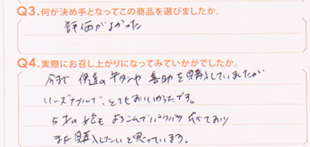 Q3.何が決め手となってこの商品を選びましたか。
評価がよかった
Q4.実際にお召し上がりになってみていかがでしたか。
今まで 伊達の牛タンや 喜助を購入していましたが
リーズナブルで、とてもおいしかったです。
5才の娘も よろこんでパクパク 食べており
また購入したいと思っています。